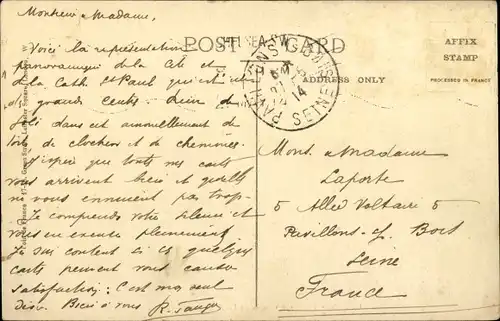 Monsieur & Madame,
Voici la représentation
panoramique de la Cité et
de la Cath. St Paul qui est un
de grands cents. Rien de
joli dans cet amoncellement
de clochers et de cheminées.
J'espère que toutes mes carts
vous arrivent bien et qu'elles
ne vous ennuient pas trop.
Je comprends votre silence et
vous en excuse pleinement
Je suis content si ces quelques
carts peuvent vous causer
satisfaction; c'est mon seul
désir. Bien à vous
POST CARD
ADDRESS ONLY
AFFIX
STAMP
PROCESSED IN FRANCE
PAVILLONS SOUS BOIS SEINE
14
Mons. & Madame
Laporte
5 Allée Voltaire 5
Pavillons-s/ Bois
Seine
France